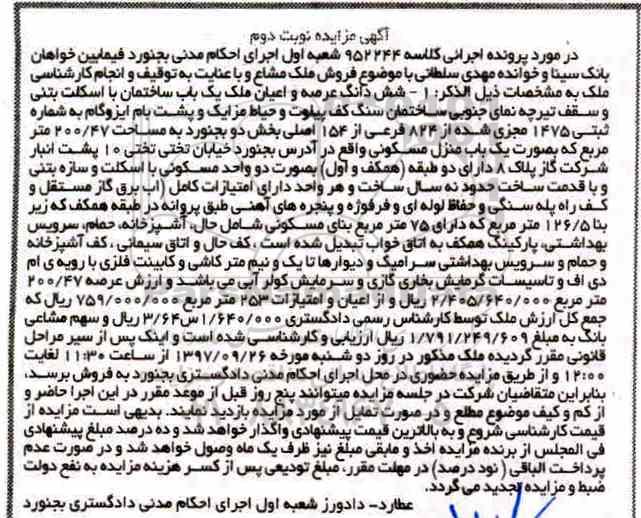 آگهی مزایده نوبت دوم
در مورد پرونده اجرائی کلاسه ۹۵۲۲۴۴ شعبه اول اجرای احکام مدنی بجنورد فیمابین خواهان
بانک سینا و خوانده مهدی سلطانی با موضوع فروش ملک مشاع و با عنایت به توقیف و انجام کارشناسی
ملک به مشخصات ذیل الذکر: ۱ - شش دانگ عرصه و اعیان ملک یک باب ساختمان با اسکلت بتنی
و سقف تیرچه نمای جنوبی ساختمان سنگ کف پیلوت و حیاط مزایک و پشت بام ایزوگام به شماره
ثبتی ۱۴۷۵ مجزی شده از ۸۲۴ فرعی از ۱۵۴ اصلی بخش دو بجنورد به مساحت ۲۰۰/۴۷ متر
مربع که بصورت یک باب منزل مسکونی واقع در آدرس بجنورد خیابان تختی تختی ۱۰ پشت انبار
شرکت گاز پلاک ۸ دارای دو طبقه (همکف و اول) بصورت دو واحد مسکونی با اسکلت و سازه بتنی
و با قدمت ساخت حدود نه سال ساخت و هر واحد دارای امتیازات کامل (اب برق گاز مستقل و
کف راه پله سنگی و حفاظ لوله ای و فرفوژه و پنجره های آهنی طبق پروانه در طبقه همکف که زیر
بنا ۱۲۶/۵ متر مربع که دارای ۷۵ متر مربع بنای مسکونی شامل حال، آشپزخانه، حمام، سرویس
بهداشتی، پارکینگ همکف به اتاق خواب تبدیل شده است ، کف حال و اتاق سیمانی ، کف آشپزخانه
و حمام و سرویس بهداشتی سرامیک و دیوارها تا یک و نیم متر کاشی و کابینت فلزی با رویه ی ام
دی اف و تاسیسات گرمایش بخاری گازی و سرمایش کولر آبی می باشید و ارزش عرصه ۲۰۰/۴۷
متر مربع ۲/۴۰۵/۶۴۰/۰۰۰ ریال و از اعیان و امتیازات ۲۵۳ متر مربع ۷۵۹/۰۰۰/۰۰۰ ریال که
جمع کل ارزش ملک توسط کارشناس رسمی دادگستری ۳/۶۴س۱/۶۴۰/۰۰۰ ریال و سهم مشاعی
بانک به مبلغ ۱/۷۹۱/۲۴۹/۶۰۹ ریال ارزیابی و کارشناسی شده است و اینک پس از سیر مراحل
قانونی مقرر گردیده ملک مذکور در روز دو شنبه مورخه ۱۳۹۷/۰۹/۲۶ از ساعت ۱۱:۳۰ لغایت
۱۲:۰۰ و از طریق مزایده حضوری در محل اجرای احکام مدنی دادگستری بجنورد به فروش برسد.
بنابراین متقاضیان شرکت در جلسه مزایده میتوانند پنج روز قبل از موعد مقرر در این اجرا حاضر و
از کم و کیف موضوع مطلع و در صورت تمایل از مورد مزایده بازدید نمایند. بدیهی است مزایده از
قیمت کارشناسی شروع و به بالاترین قیمت پیشنهادی واگذار خواهد شد و ده درصد مبلغ پیشنهادی
فی المجلس از برنده مزایده اخذ و مابقی مبلغ نیز ظرف یک ماه وصول خواهد شد و در صورت عدم
پرداخت الباقی ( نود درصد) در مهلت مقرر، مبلغ تودیعی پس از کسر هزینه مزایده به نفع دولت
ضبط و مزایده تجدید می گردد.
عطارد- دادورز شعبه اول اجرای احکام مدنی دادگستری بجنورد